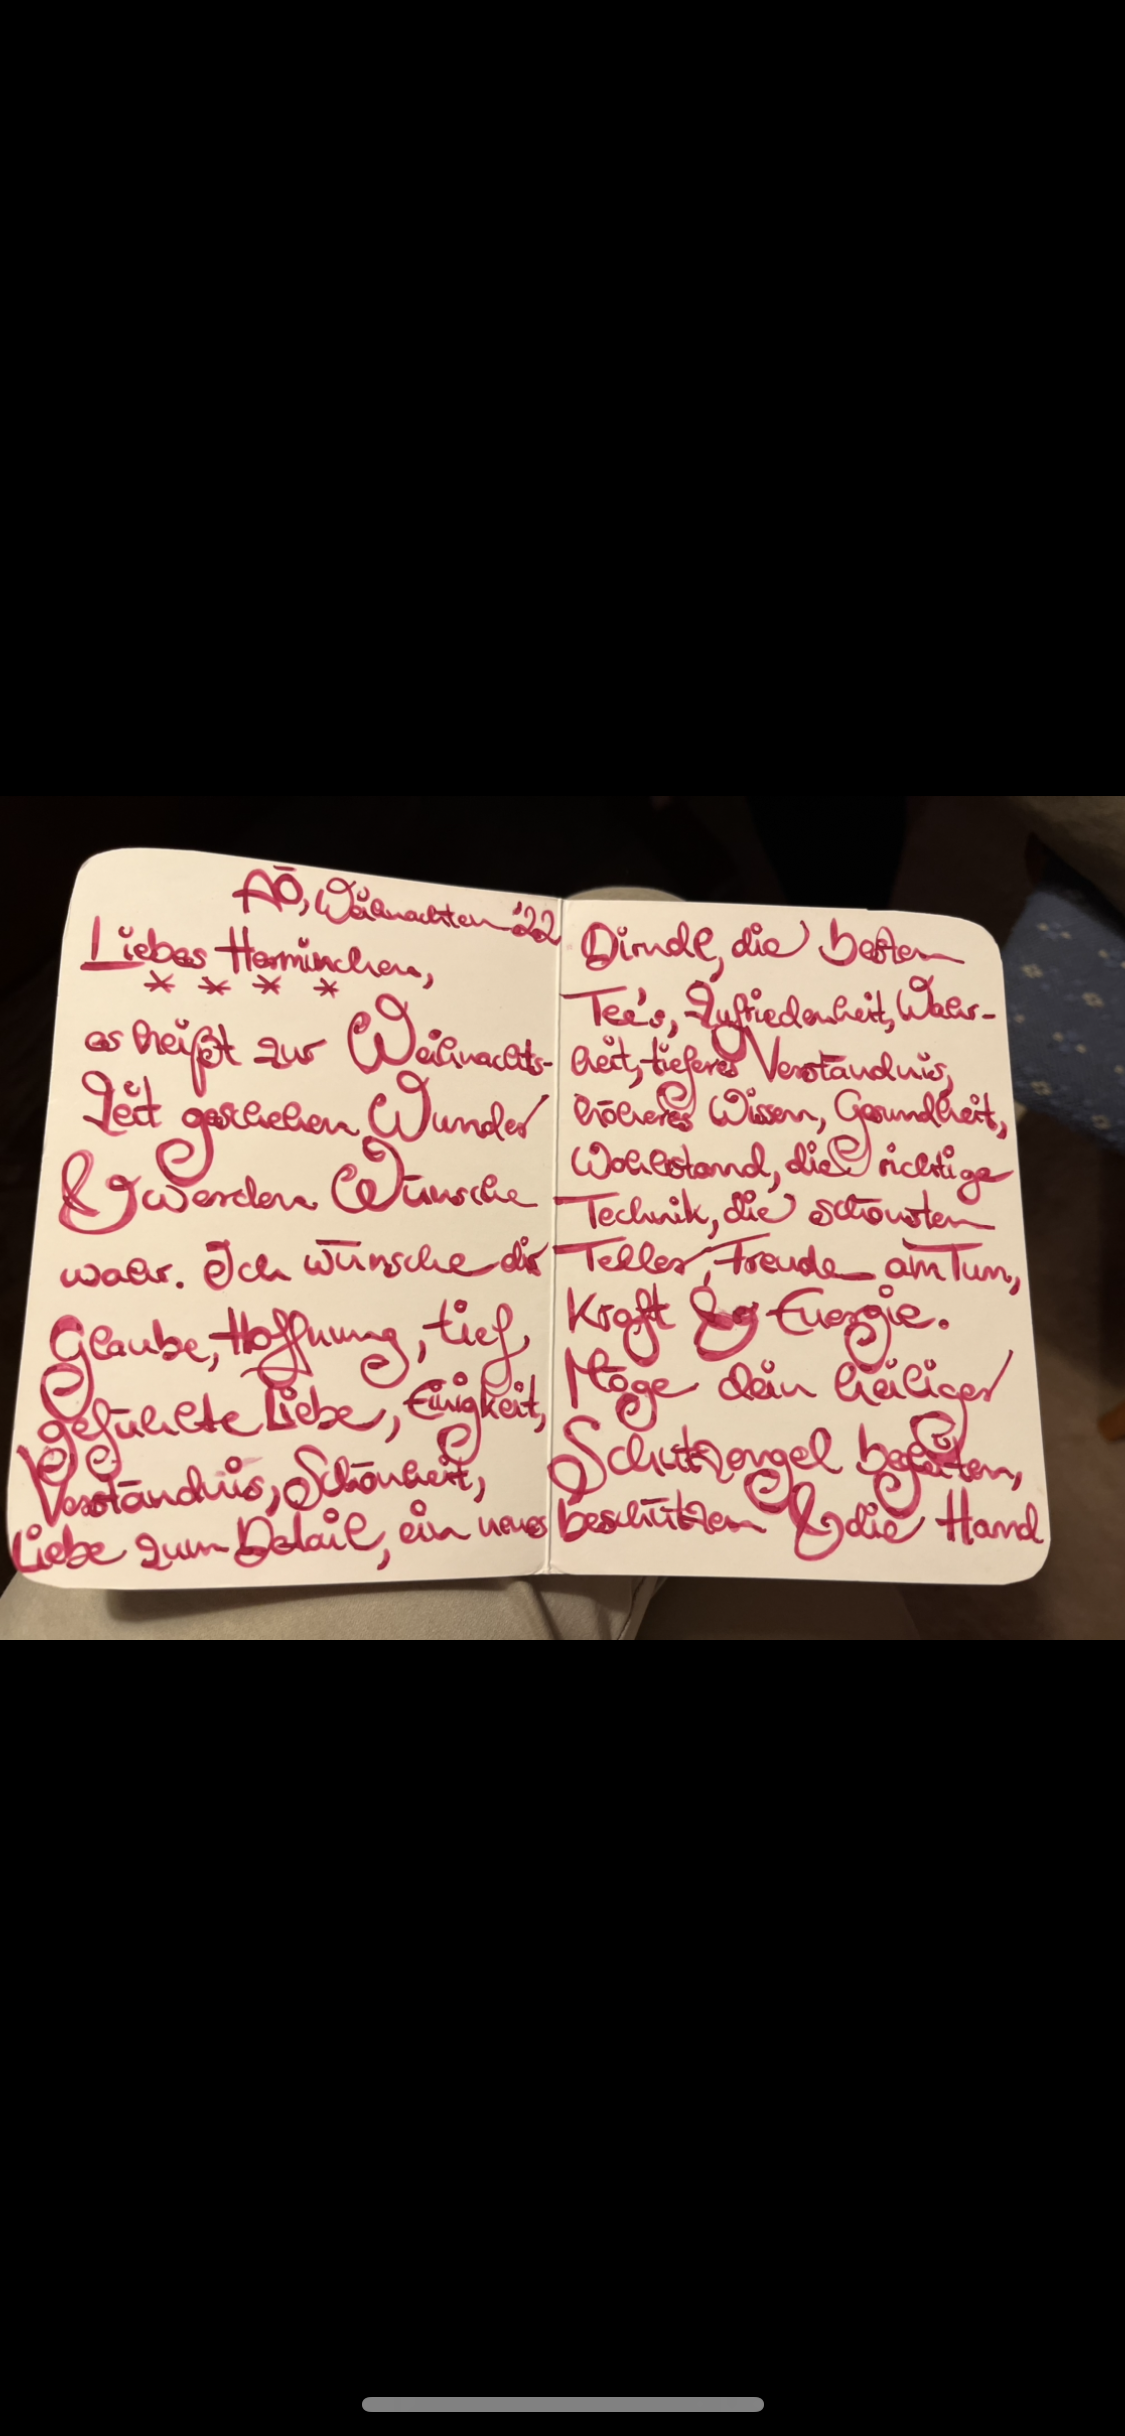 AÖ, Weihnachten '22
Liebes Herminchen,
es heißt zur Weihnachts-
Zeit geschehen Wunder
& werden Wünsche
wahr. Ich wünsche dir
Glaube, Hoffnung, tief
gefühlte Liebe, Einigkeit,
Verständnis, Schönheit,
Liebe zum Detail, ein neues
Dirndl, die besten
Tee's, Zufriedenheit, Wahr-
heit, tieferes Verständnis,
höheres Wissen, Gesundheit,
Wohlstand, die richtige
Technik, die schönsten
Teller, Freude am Tun,
Kraft & Energie.
Möge dein heiliger
Schutzengel begleiten,
beschützen & die Hand